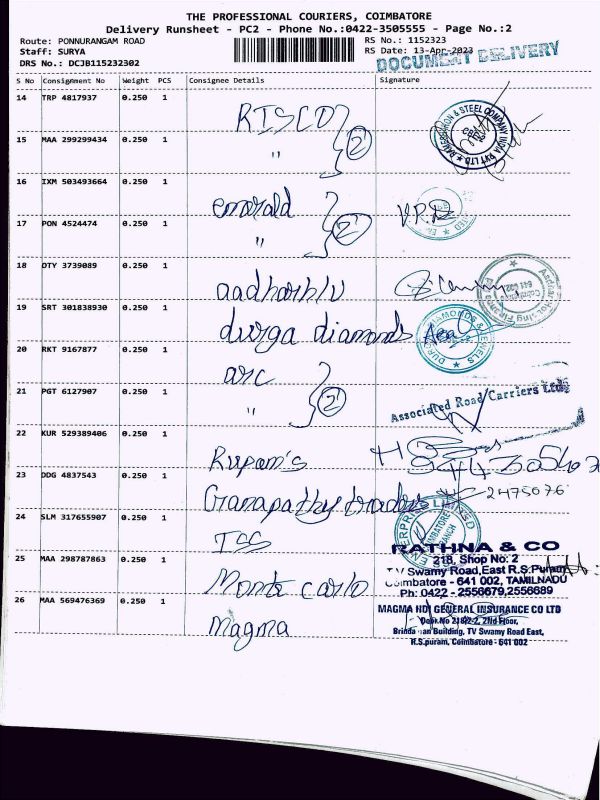 THE PROFESSIONAL COURIERS, COIMBATORE
Delivery Runsheet - PC2 - Phone No.:0422-3505555 - Page No.:2
Route: PONNURANGAM ROAD
RS No.: 1152323
Staff: SURYA
RS Date: 13-Apr-2023
DRS No.: DCJB115232302
DOCUMENT DELIVERY
S No Consignment No Weight PCS Consignee Details Signature
14 TRP 4817937 0.250 1 RISCO
15 MAA 299299434 0.250 1 " 2
16 IXM 503493664 0.250 1 emerald
17 PON 4524474 0.250 1 " 2
18 OTY 3739089 0.250 1
19 SRT 301838930 0.250 1 durga diamonds
20 RKT 9167877 0.250 1 arc
21 PGT 6127907 0.250 1 " 2
Associated Road Carriers Ltd.
22 KUR 529389406 0.250 1 Rupam's
23 DDG 4837543 0.250 1 Ganapathy traders 2475076
24 SLM 317655907 0.250 1 TSS
25 MAA 298787863 0.250 1 Monte carlo
RATHNA & CO
218, Shop No: 2
Swamy Road, East R.S.Puram
Coimbatore - 641 002, TAMILNADU
Ph: 0422 - 2556679,2556689
26 MAA 569476369 0.250 1 Magma
MAGMA HDI GENERAL INSURANCE CO LTD
Door No 218/2-2, 2nd Floor,
Building, TV Swamy Road East,
R.S.puram, Coimbatore - 641 002